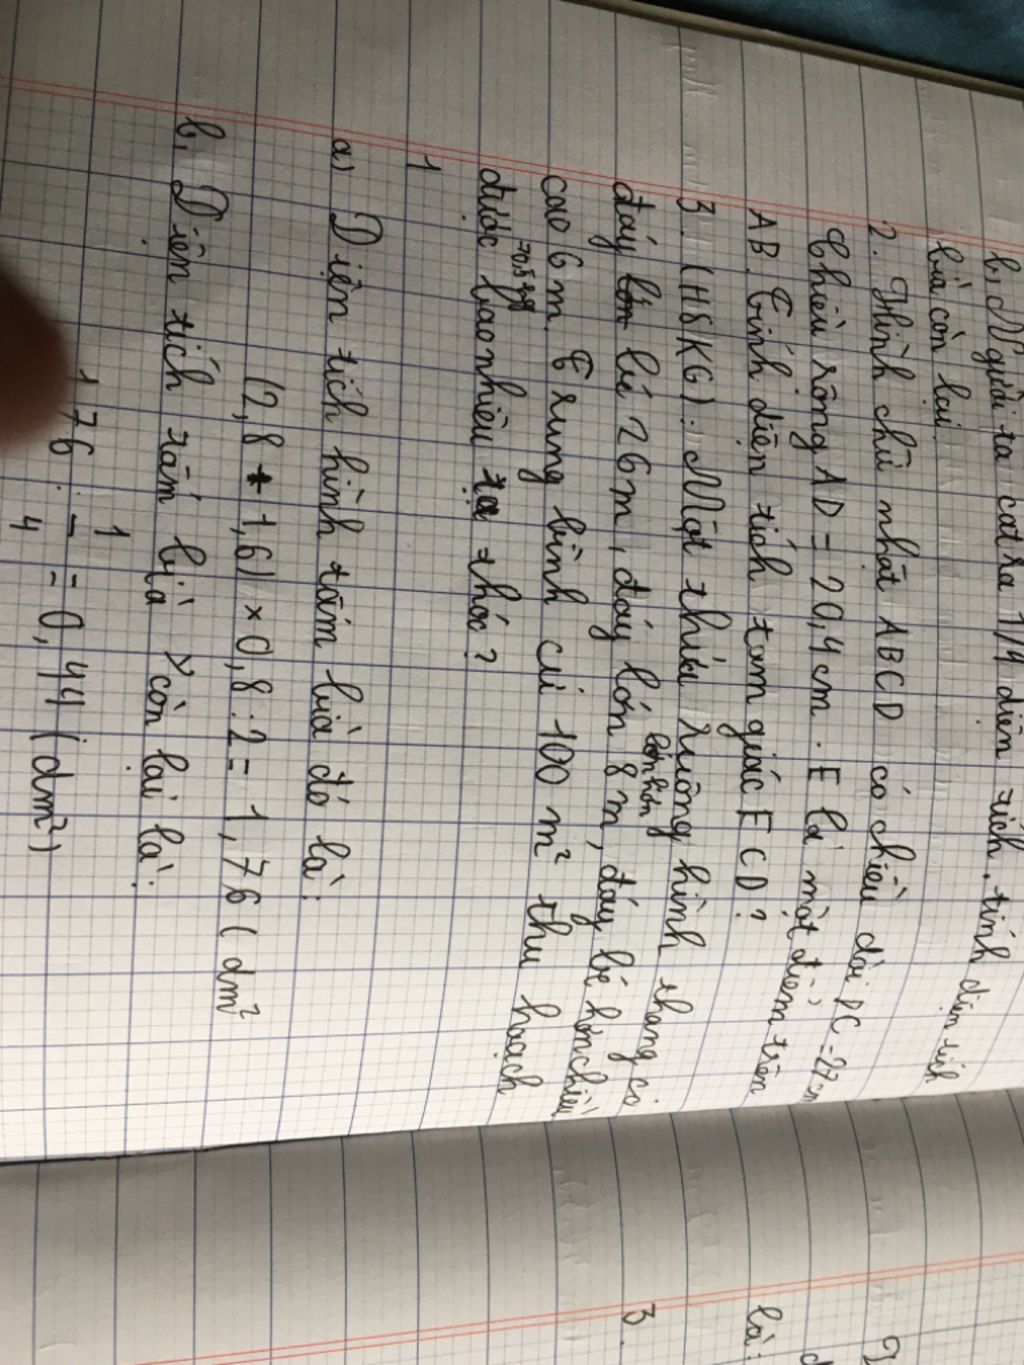 b, Người ta cắt ra 1/4 diện tích, tính diện tích
bìa còn lại.
2. Hình chữ nhật ABCD có chiều dài DC = 27cm
Chiều rộng AD = 20,4cm. E là một điểm trên
AB. Tính diện tích tam giác ECD?
3. (HSKG). Một thửa ruộng hình thang có
đáy bé 26m, đáy lớn lớn hơn 8m, đáy bé hơn chiều
cao 6m. Trung bình cứ 100m² thu hoạch
70,5kg
được bao nhiêu tạ thóc?
1
a) Diện tích hình tấm bìa đó là:
(2,8 + 1,6) × 0,8 : 2 = 1,76 (dm²
b, Diện tích tấm bìa còn lại là:
1,76 : 1/4 = 0,44 (dm²)
là:
3.